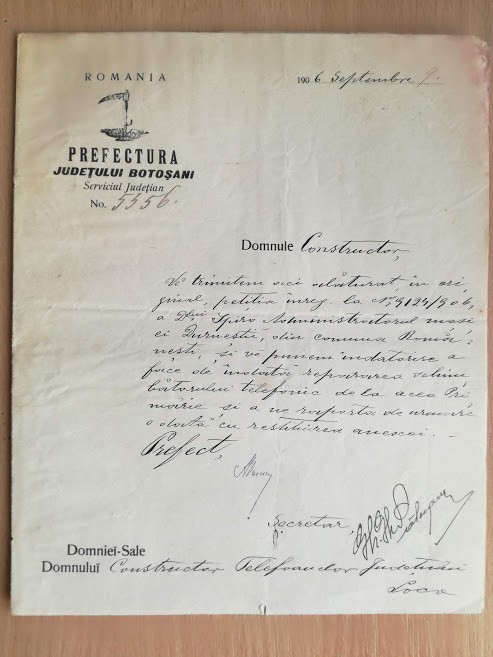 ROMANIA
1906 Septembre 9.
PREFECTURA
JUDEȚULUI BOTOȘANI
Serviciul Județian
No. 5556.
Domnule Constructor,
Vĕ trimitem aci alăturat, in ori
ginal, petiția înreg. la Nº 9124/906,
a Dlui Spiru Administratorul mosi
ei Durnesti, din comuna Românĕ
nești, si vĕ punem indatorire a
face de îndată repararea schim
bătorului telefonic de la acea Pri
mărie si a ne raporta de urmare
o dată cu restituirea anexei. -
Prefect,
Secretar,
Domniei-Sale
Domnului Constructor Telefoanelor Județian
Loco